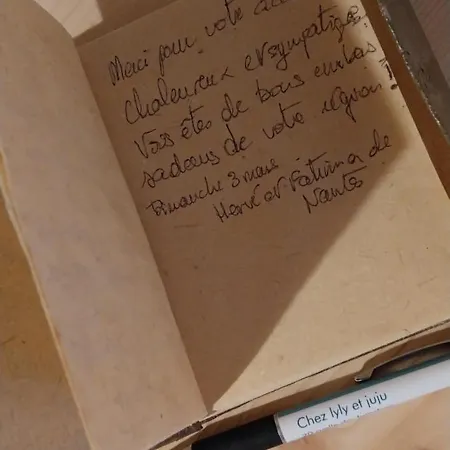 Merci pour votre
Chaleureux et sympathique
Vous êtes de bons embas
sadeurs de votre région !!
Dimanche 3 mars
Hervé et Fatima de
Nantes
Chez lyly et juju